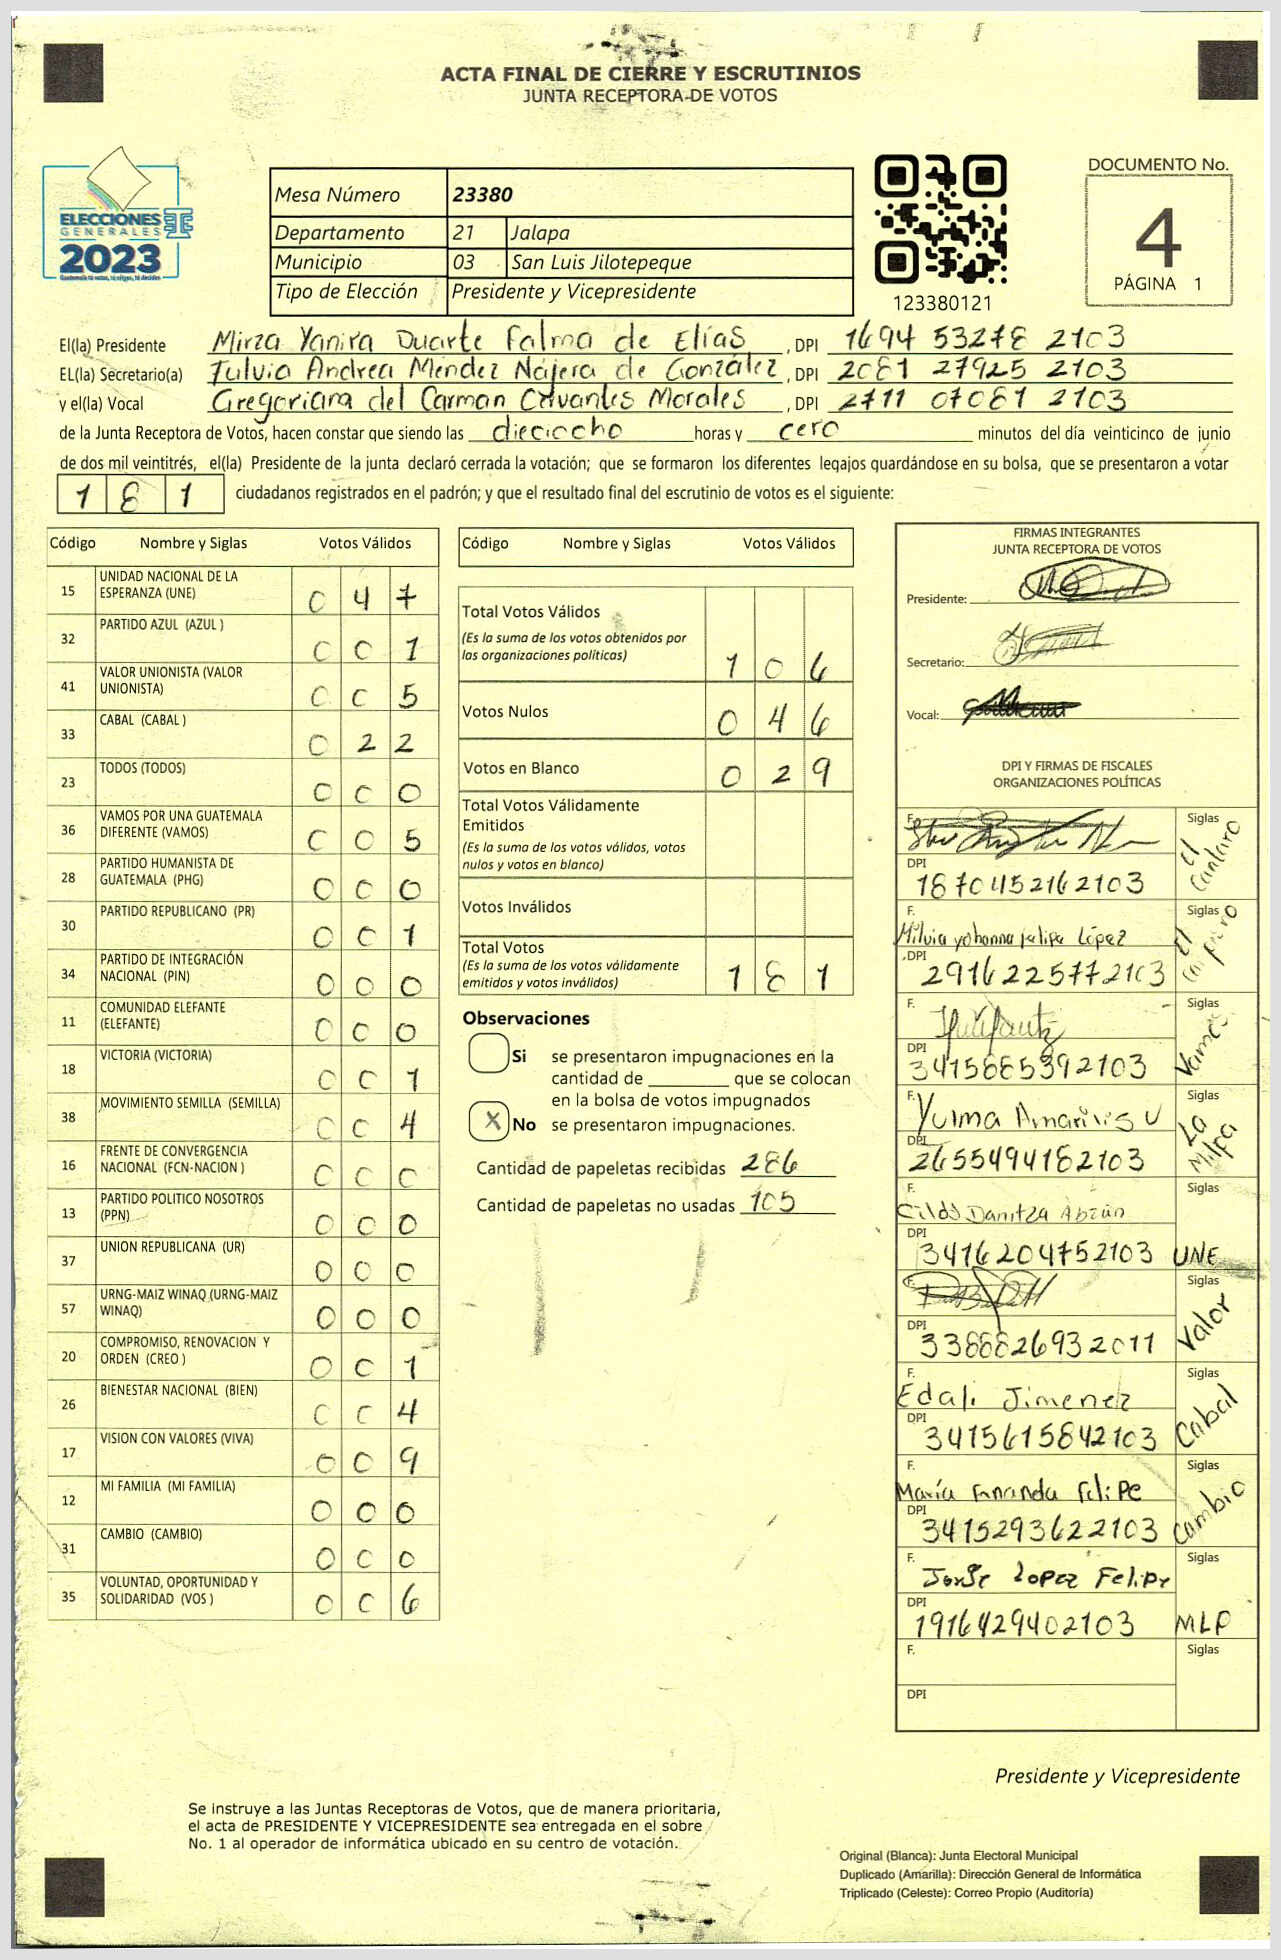 ACTA FINAL DE CIERRE Y ESCRUTINIOS
JUNTA RECEPTORA DE VOTOS
ELECCIONES
GENERALES
2023
Guatemala tú votas, tú eliges, tú decides
Mesa Número 23380
Departamento 21 Jalapa
Municipio 03 San Luis Jilotepeque
Tipo de Elección Presidente y Vicepresidente
123380121
DOCUMENTO No.
4
PÁGINA 1
El(la) Presidente Mirza Yanira Duarte Palma de Elías, DPI 1694 53278 2103
EL(la) Secretario(a) Fulvia Andrea Méndez Nájera de González, DPI 2081 27925 2103
y el(la) Vocal Gregoriana del Carman Cervantes Morales, DPI 2711 07081 2103
de la Junta Receptora de Votos, hacen constar que siendo las dieciocho horas y cero minutos del día veinticinco de junio
de dos mil veintitrés, el(la) Presidente de la junta declaró cerrada la votación; que se formaron los diferentes legajos quardándose en su bolsa, que se presentaron a votar
181 ciudadanos registrados en el padrón; y que el resultado final del escrutinio de votos es el siguiente:
Código Nombre y Siglas Votos Válidos
15 UNIDAD NACIONAL DE LA ESPERANZA (UNE) 047
32 PARTIDO AZUL (AZUL ) 001
41 VALOR UNIONISTA (VALOR UNIONISTA) 005
33 CABAL (CABAL ) 022
23 TODOS (TODOS) 000
36 VAMOS POR UNA GUATEMALA DIFERENTE (VAMOS) 005
28 PARTIDO HUMANISTA DE GUATEMALA (PHG) 000
30 PARTIDO REPUBLICANO (PR) 001
34 PARTIDO DE INTEGRACIÓN NACIONAL (PIN) 000
11 COMUNIDAD ELEFANTE (ELEFANTE) 000
18 VICTORIA (VICTORIA) 001
38 MOVIMIENTO SEMILLA (SEMILLA) 004
16 FRENTE DE CONVERGENCIA NACIONAL (FCN-NACION ) 000
13 PARTIDO POLITICO NOSOTROS (PPN) 000
37 UNION REPUBLICANA (UR) 000
57 URNG-MAIZ WINAQ (URNG-MAIZ WINAQ) 000
20 COMPROMISO, RENOVACION Y ORDEN (CREO ) 001
26 BIENESTAR NACIONAL (BIEN) 004
17 VISION CON VALORES (VIVA) 009
12 MI FAMILIA (MI FAMILIA) 000
31 CAMBIO (CAMBIO) 000
35 VOLUNTAD, OPORTUNIDAD Y SOLIDARIDAD (VOS ) 006
Código Nombre y Siglas Votos Válidos
Total Votos Válidos
(Es la suma de los votos obtenidos por
las organizaciones políticas) 106
Votos Nulos 046
Votos en Blanco 029
Total Votos Válidamente
Emitidos
(Es la suma de los votos válidos, votos
nulos y votos en blanco)
Votos Inválidos
Total Votos
(Es la suma de los votos válidamente
emitidos y votos inválidos) 181
Observaciones
Si se presentaron impugnaciones en la
cantidad de ________ que se colocan
en la bolsa de votos impugnados
X No se presentaron impugnaciones.
Cantidad de papeletas recibidas 286
Cantidad de papeletas no usadas 105
FIRMAS INTEGRANTES
JUNTA RECEPTORA DE VOTOS
Presidente:
Secretario:
Vocal:
DPI Y FIRMAS DE FISCALES
ORGANIZACIONES POLÍTICAS
F. Siglas El Cantaro
DPI 1870452162103
F. Milvia yohanna felipe López Siglas
DPI 2916225772103
F. Siglas Vamos
DPI 3415885392103
F. Yulma Amarilis U Siglas La Milpa
DPI 2655494182103
F. Danitza Siglas UNE
DPI 3416204752103
F. Siglas Valor
DPI 3388826932011
F. Edali Jimenez Siglas Cabal
DPI 3415615842103
F. María Fernanda Felipe Siglas Cambio
DPI 3415293622103
F. Jorge Lopez Felipe Siglas MLP
DPI 1916429402103
F. Siglas
DPI
Presidente y Vicepresidente
Se instruye a las Juntas Receptoras de Votos, que de manera prioritaria,
el acta de PRESIDENTE Y VICEPRESIDENTE sea entregada en el sobre
No. 1 al operador de informática ubicado en su centro de votación.
Original (Blanca): Junta Electoral Municipal
Duplicado (Amarilla): Dirección General de Informática
Triplicado (Celeste): Correo Propio (Auditoría)